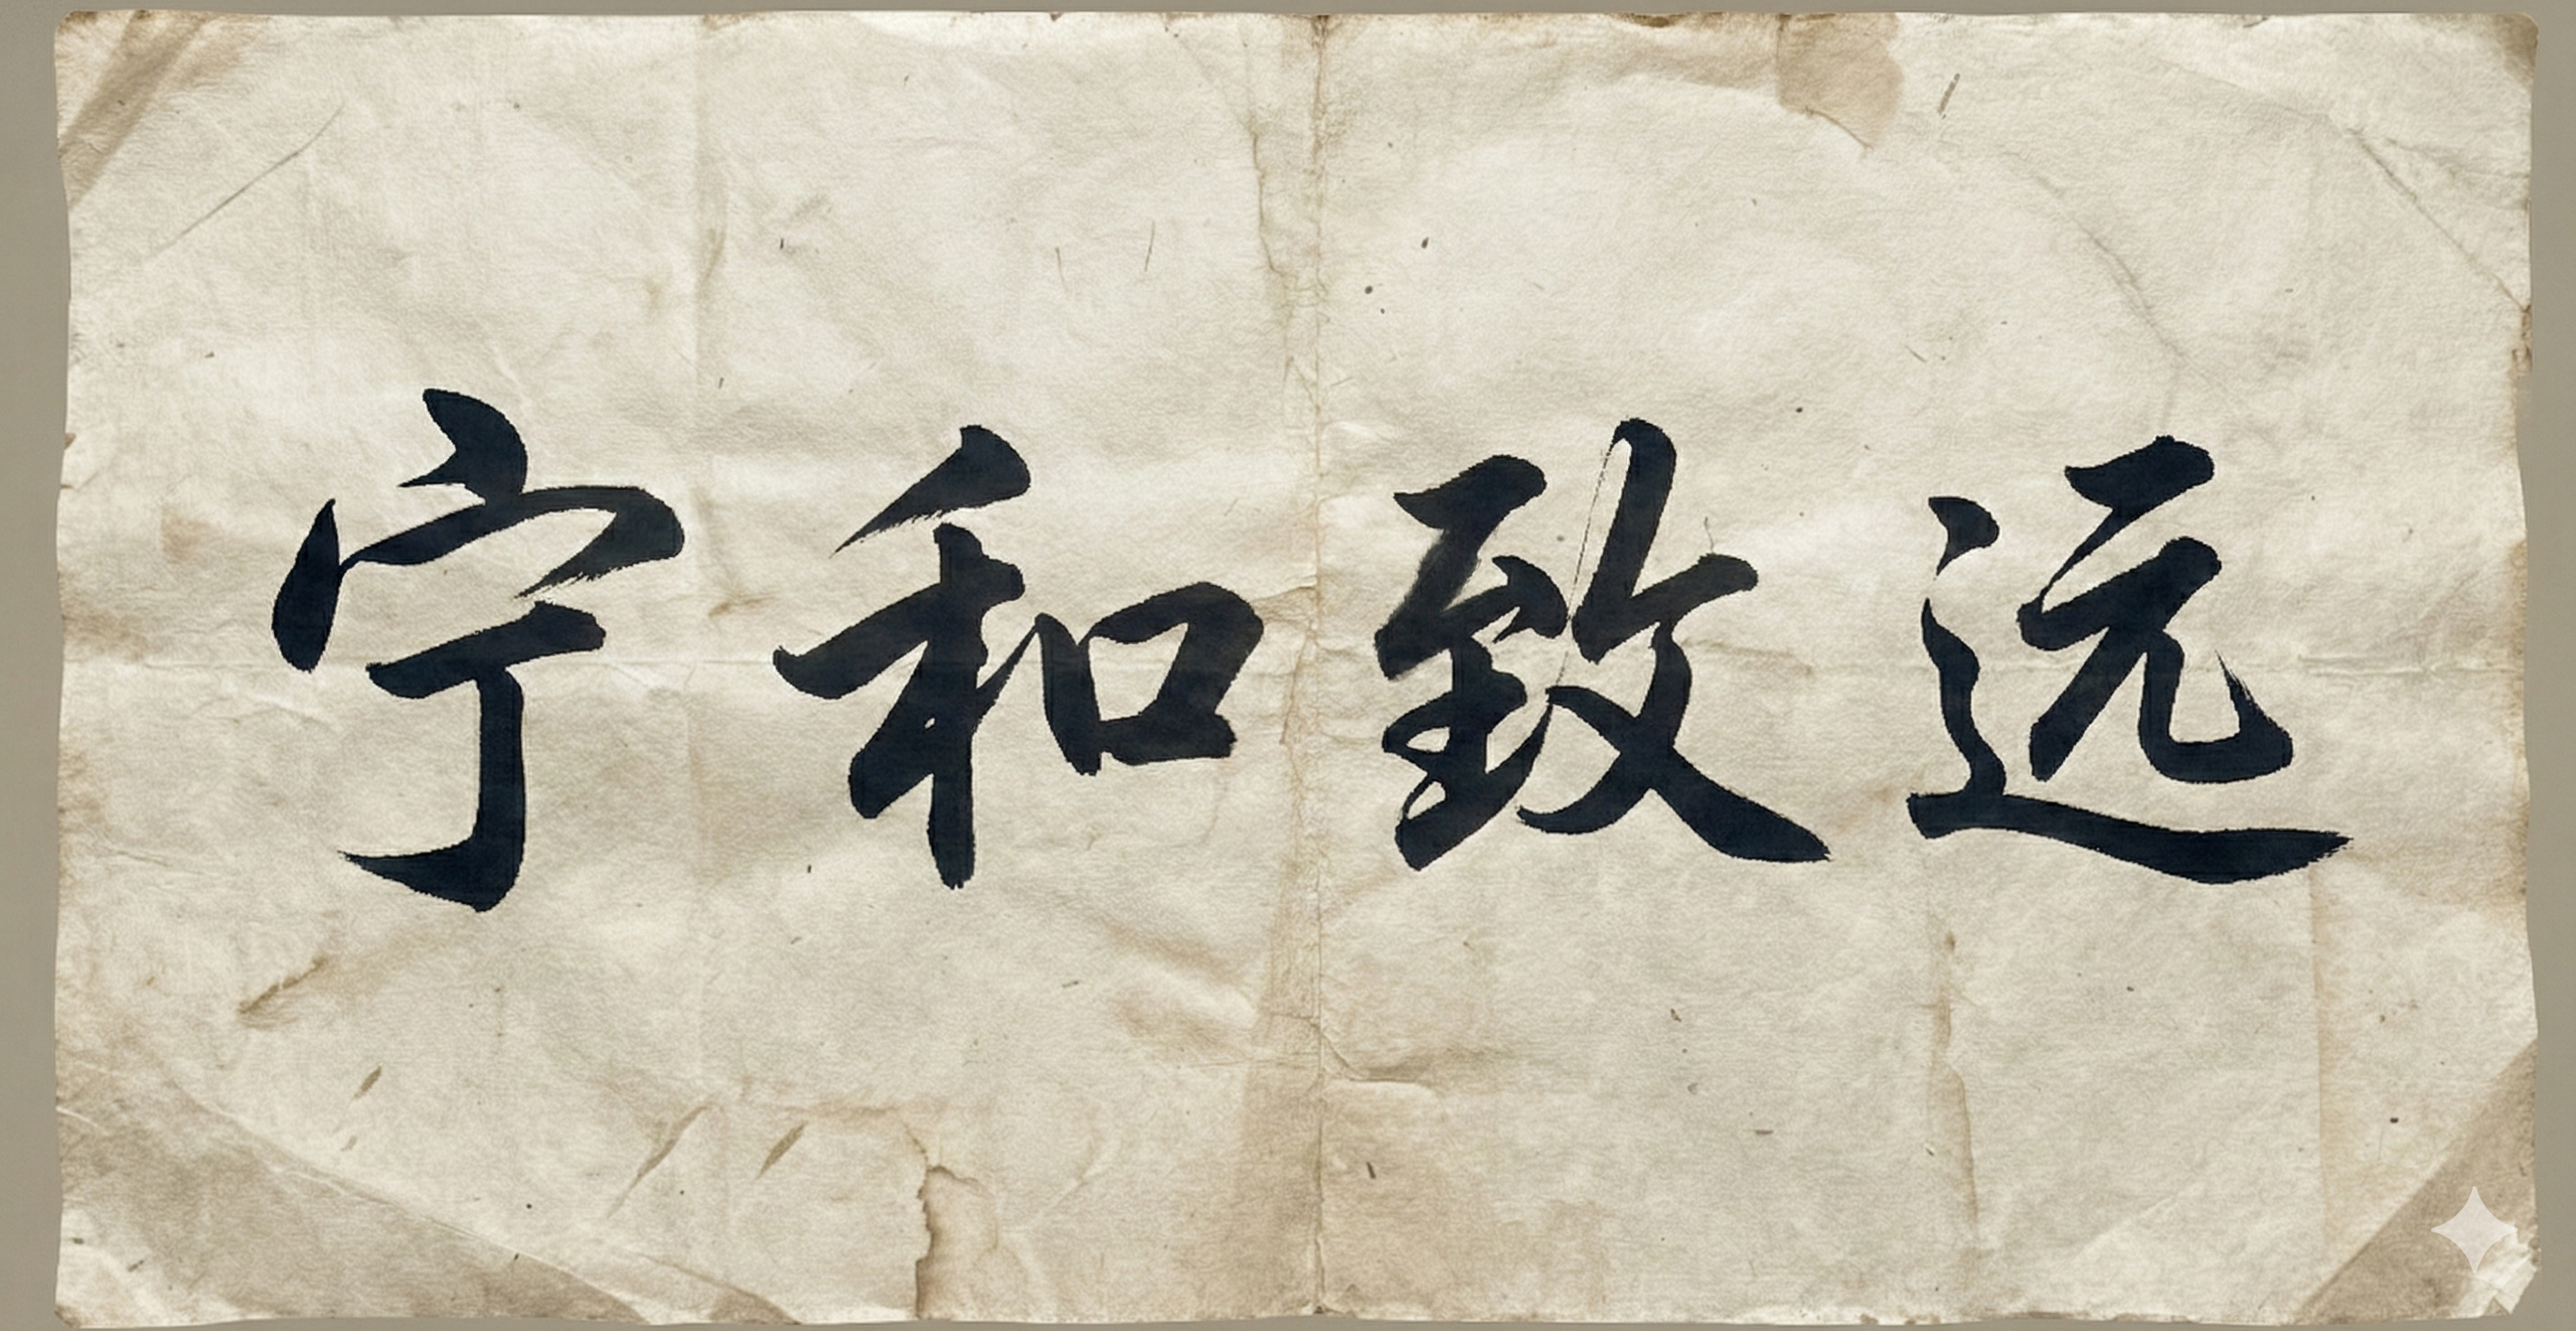 宁和致远